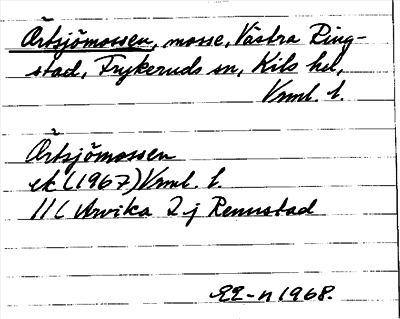 Ärtsjömossen, mosse, Västra Ring-
stad, Frykeruds sn, Kils hd,
Vrml. l.
Ärtsjömossen
ek (1967) Vrml. l.
11 C Arvika 2 j Rennstad
RE-n 1968.